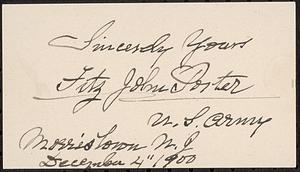 Sincerely Yours
Fitz John Porter
U.S. Army
Morristown N.J
December 4" 1900